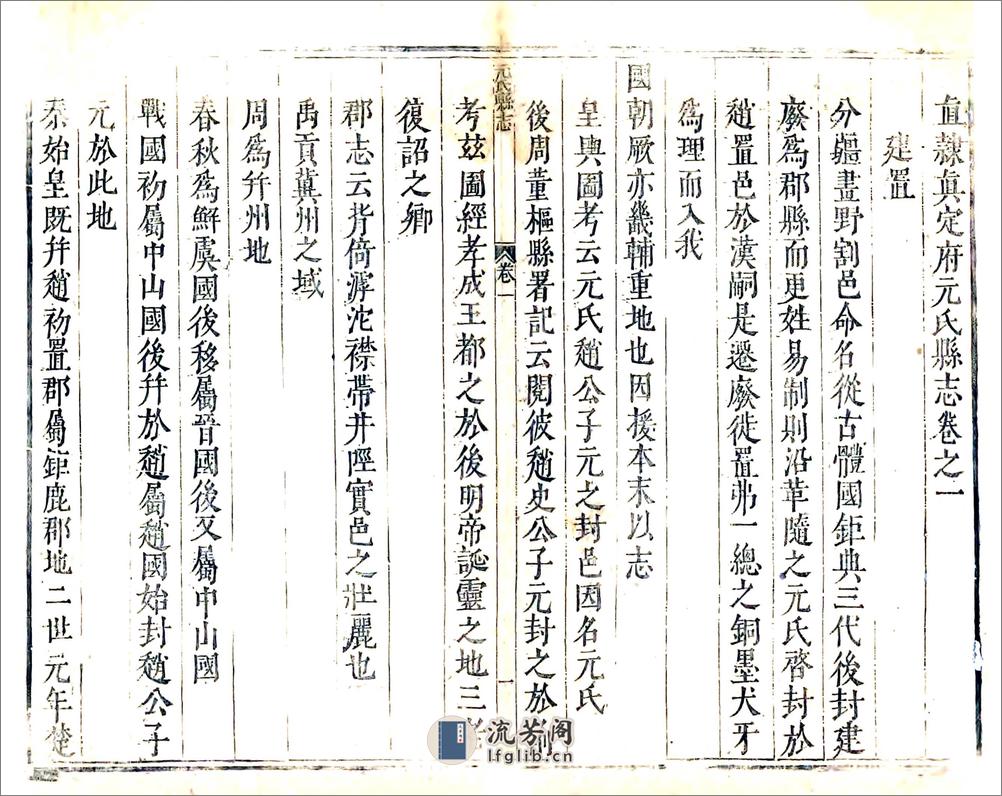 直隸真定府元氏縣志卷之一
建置
分疆畫野割邑命名從古體國鉅典三代後封建
廢爲郡縣而更姓易制則沿革隨之元氏啓封於
趙置邑於漢嗣是遷廢徙置弗一總之銅墨犬牙
爲理而入我
國朝厥亦畿輔重地也因援本末以志
皇輿圖考云元氏趙公子元之封邑因名元氏
後周董樞縣署記云閱彼趙史公子元封之於前
考玆圖經孝成王都之於後明帝誕靈之地三
復詔之鄉
郡志云背倚滹沱襟帶井陘實邑之壯麗也
禹貢冀州之域
周爲幷州地
春秋爲鮮虞國後移屬晉國後又屬中山國
戰國初屬中山國後幷於趙屬趙國始封趙公子
元於此地
秦始皇既幷趙初置郡屬鉅鹿郡地二世元年楚
元氏縣志
卷一
一
流芳阁
lfglib.cn